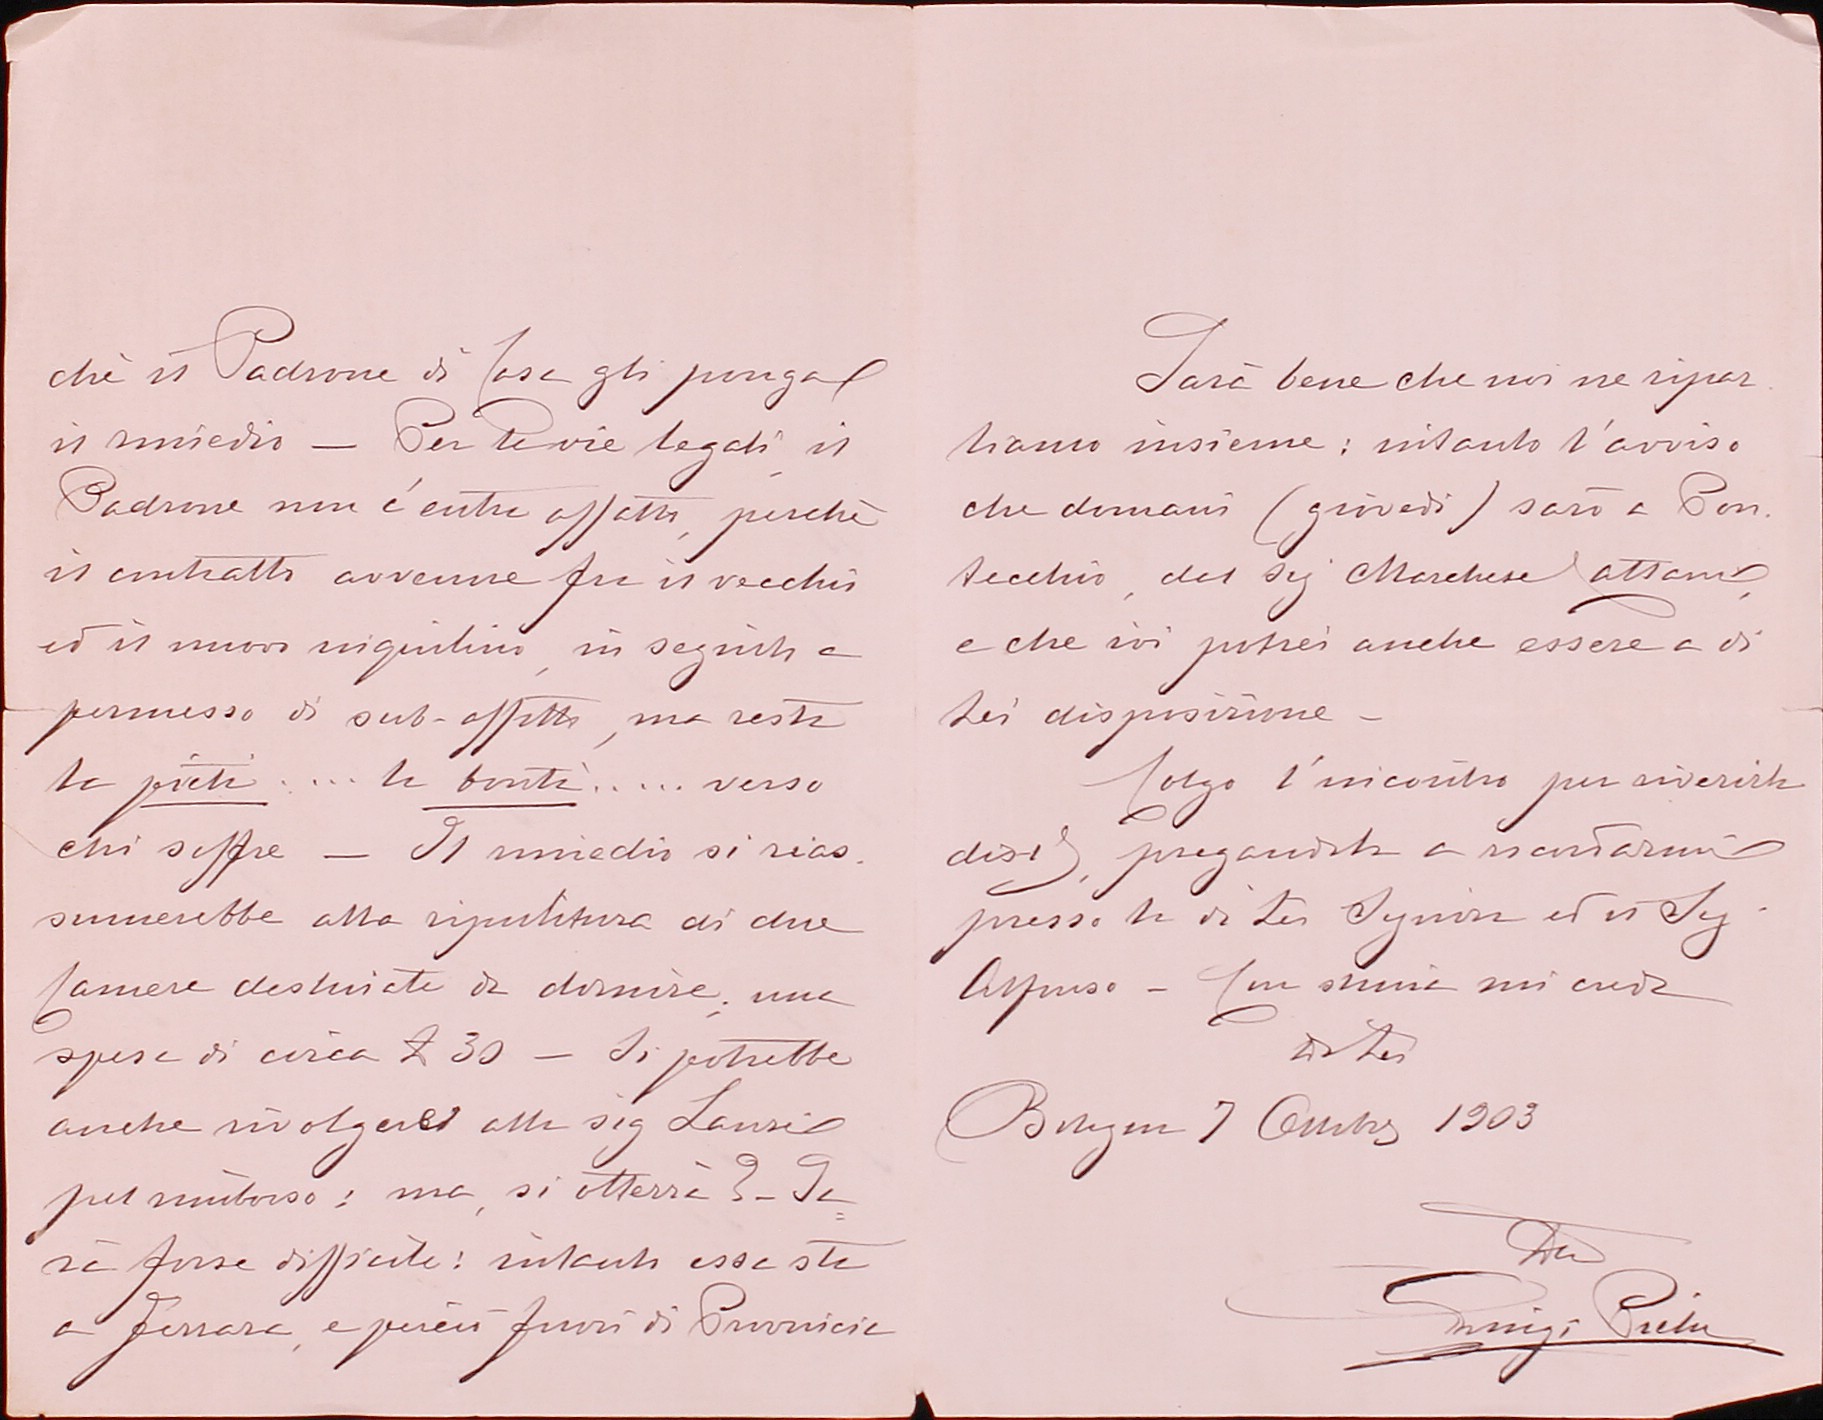 chè il Padrone di Casa gli ponga
il rimedio — Per le vie legali, il
Padrone non c'entra affatto, perchè
il contratto avvenne fra il vecchio
ed il nuovo inquilino, in seguito a
permesso di sub-affitto, ma resta
la pietà ..... la bontà ..... verso
chi soffre — Il rimedio si rias-
sumerebbe alla ripulitura di due
Camere destinate da dormire, una
spesa di circa £ 30 — Si potrebbe
anche rivolgersi alla sig Lanzi
pel rimborso; ma, si otterrà? — Sa=
rà forse difficile: intanto essa sta
a Ferrara, e perciò fuori di Provincia
Sarà bene che noi ne ripar-
liamo insieme: intanto l'avviso
che domani (giovedì) sarò a Pon-
tecchio, dal Sig Marchese
e che ivi potrei anche essere a di
Lei disposizione —
Colgo l'incontro per riverirla
pregandola a ricordarmi
presso la di Lei Signora ed il Sig
Alfonso — Con stima mi creda
Di Lei
Bologna 7 Ottobre 1903
Luigi